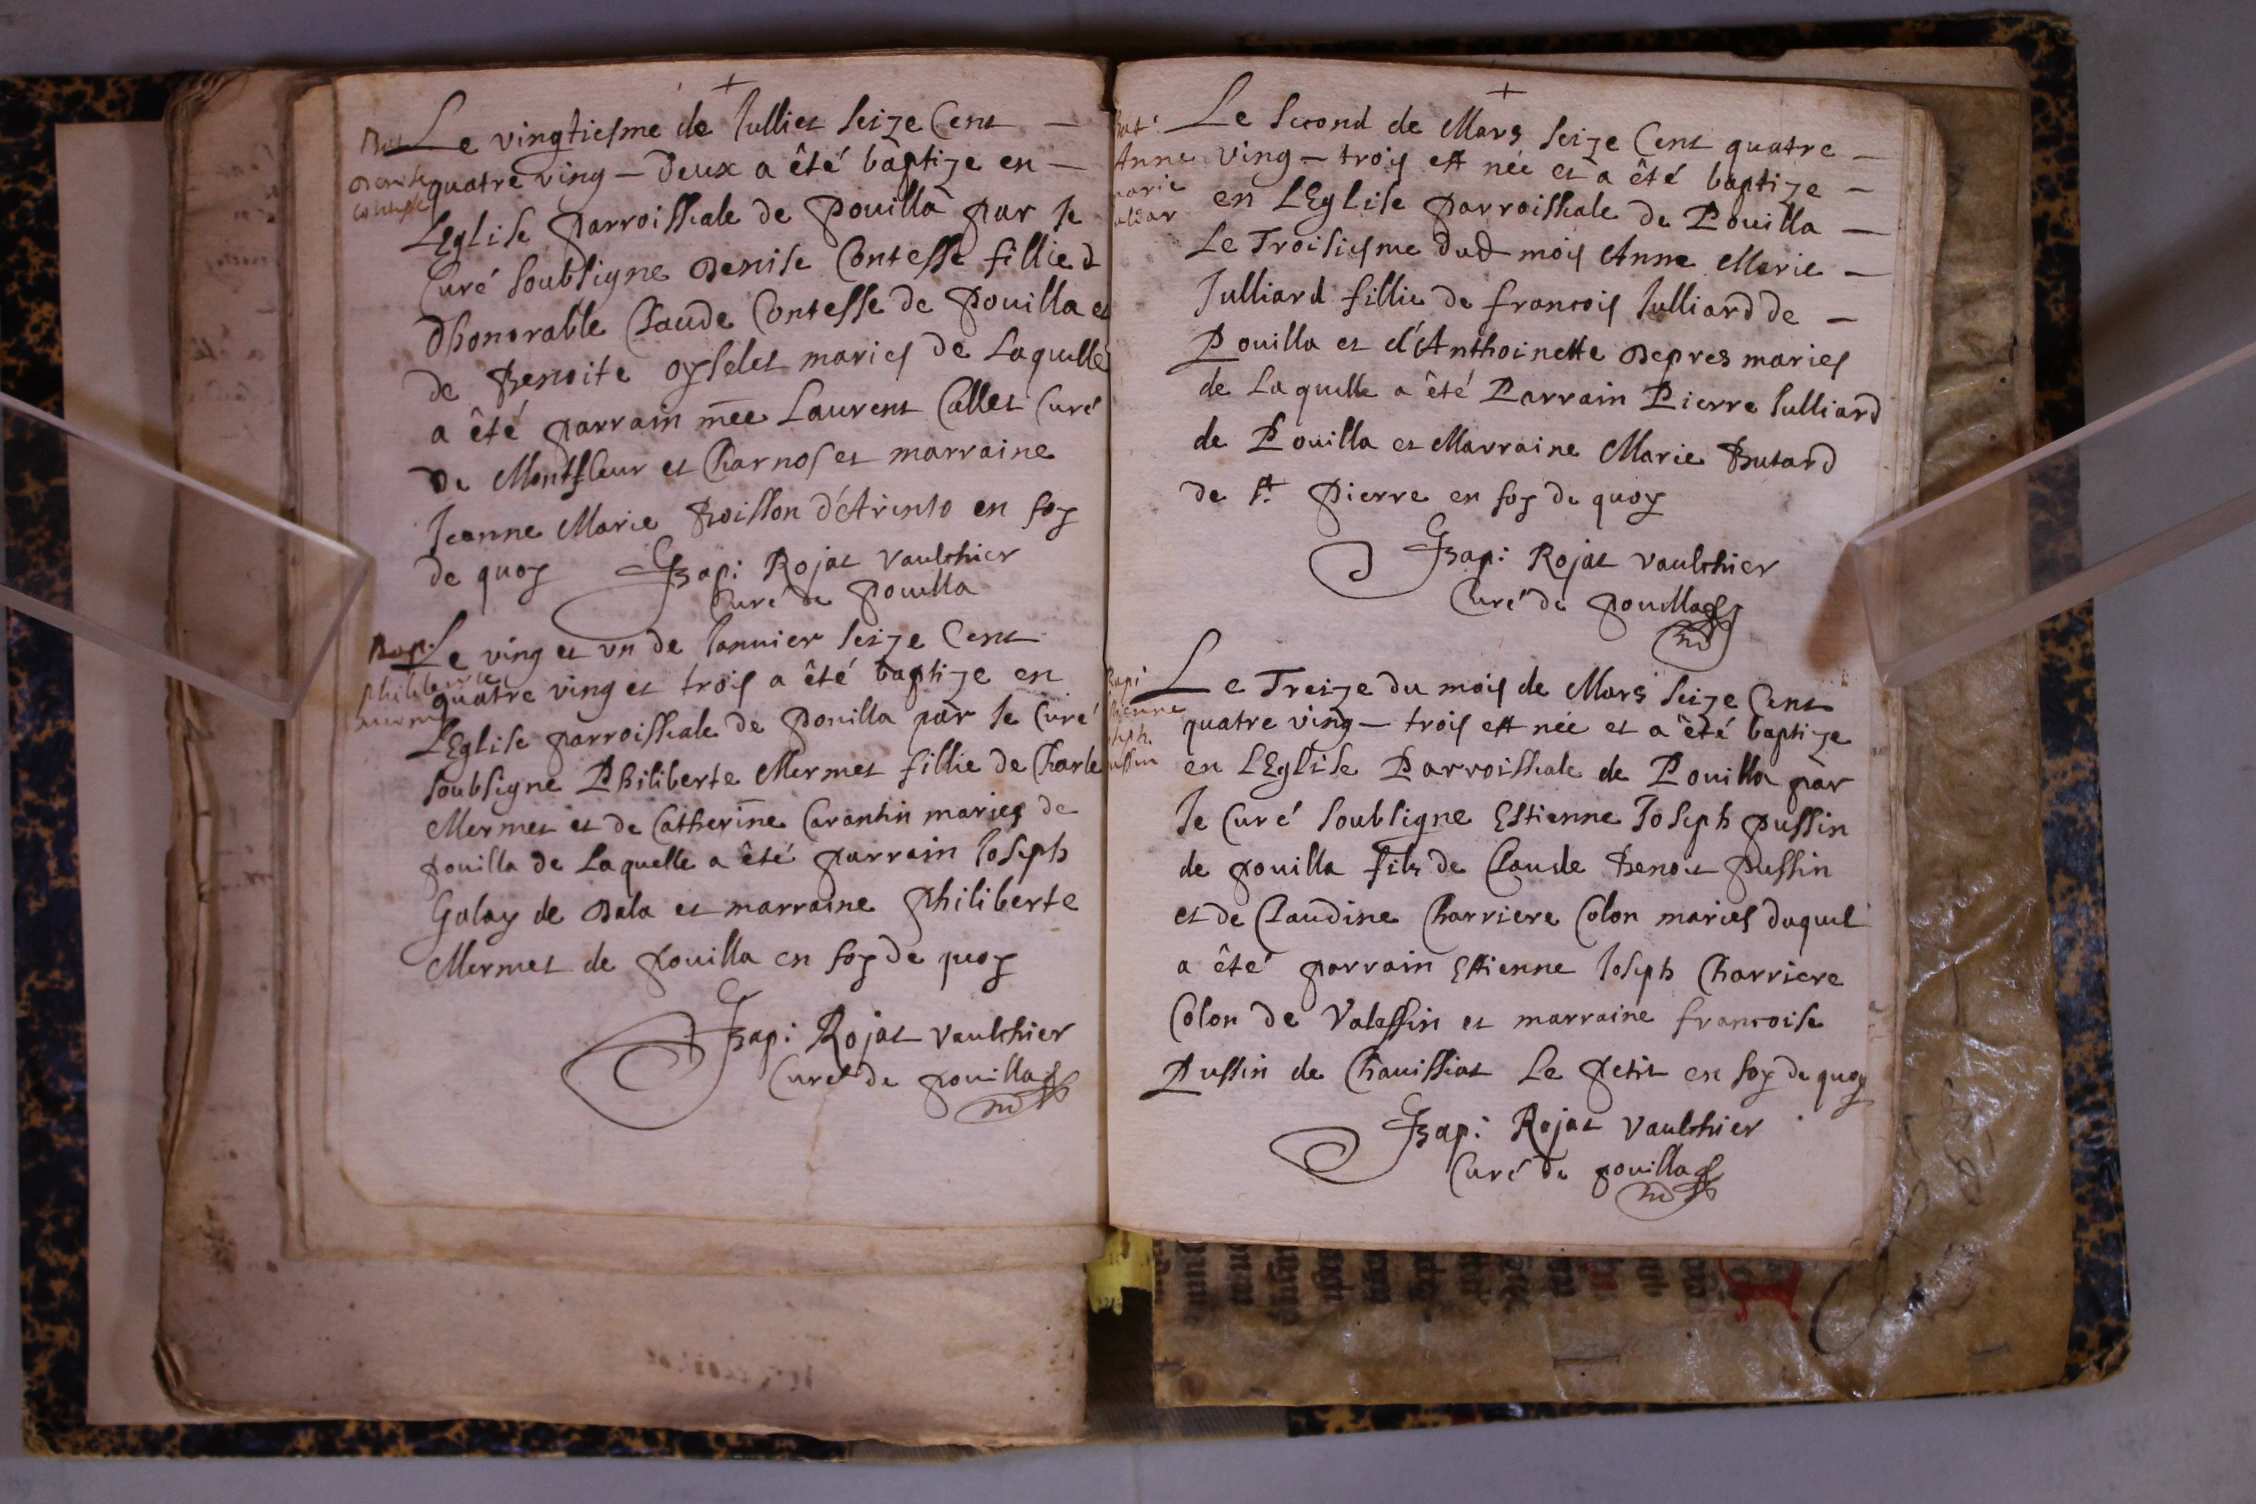 +
Bap
Denise
Contesse
Le vingtiesme de Iulliet seize Cent —
quatre ving — deux a êté baptize en —
LEglise parroissiale de pouilla par le
Curé soubsigne Denise Contesse fillie d
dhonorable Claude Contesse de pouilla et
de Benoite oyselet maries de Laquelle
a êté parrain mre Laurent Callet Curé
de Montfleur et Charnos et marraine
Jeanne Marie Boisson d'Arinto en foy
de quoy
Bap: Rojat vaulchier
Curé de pouilla
Bap:
philiberte
mermet
Le ving et vn de Ianuier seize Cent
quatre ving et trois a êté baptize en
LEglise parroissiale de pouilla par le Curé
soubsigne Philiberte Mermet fillie de Charle
Mermet et de Catherine Carantin maries de
pouilla de Laquelle a êté parrain Ioseph
Galay de Dala et marraine philiberte
Mermet de pouilla en foy de quoy
Bap: Rojat vaulchier
Curé de pouilla
+
Bat:
Anne
marie
Le second de Mars seize Cent quatre —
ving — trois est née et a êté baptize —
en LEglise parroissiale de Pouilla —
Le Troisiesme dud mois Anne Marie —
Julliard fillie de francois Iulliard de —
Pouilla et d'Anthoinette Depres maries
de Laquelle a êté Parrain Pierre Iulliard
de Pouilla et Marraine Marie Butard
de st pierre en foy de quoy
Bap: Rojat vaulchier
Curé de pouilla
Bapi
tienne
seph
ussin
Le Treize du mois de Mars seize Cent
quatre ving — trois est née et a êté baptize
en LEglise Parroissiale de Pouilla par
le Curé soubsigne Estienne Joseph pussin
de pouilla fils de Claude Benoit pussin
et de Claudine Charriere Colon maries duquel
a êté parrain Estienne Ioseph Charriere
Colon de Valessin et marraine francoise
Pussin de Chauissiat Le petit en foy de quoy
Bap: Rojat vaulchier
Curé de pouilla